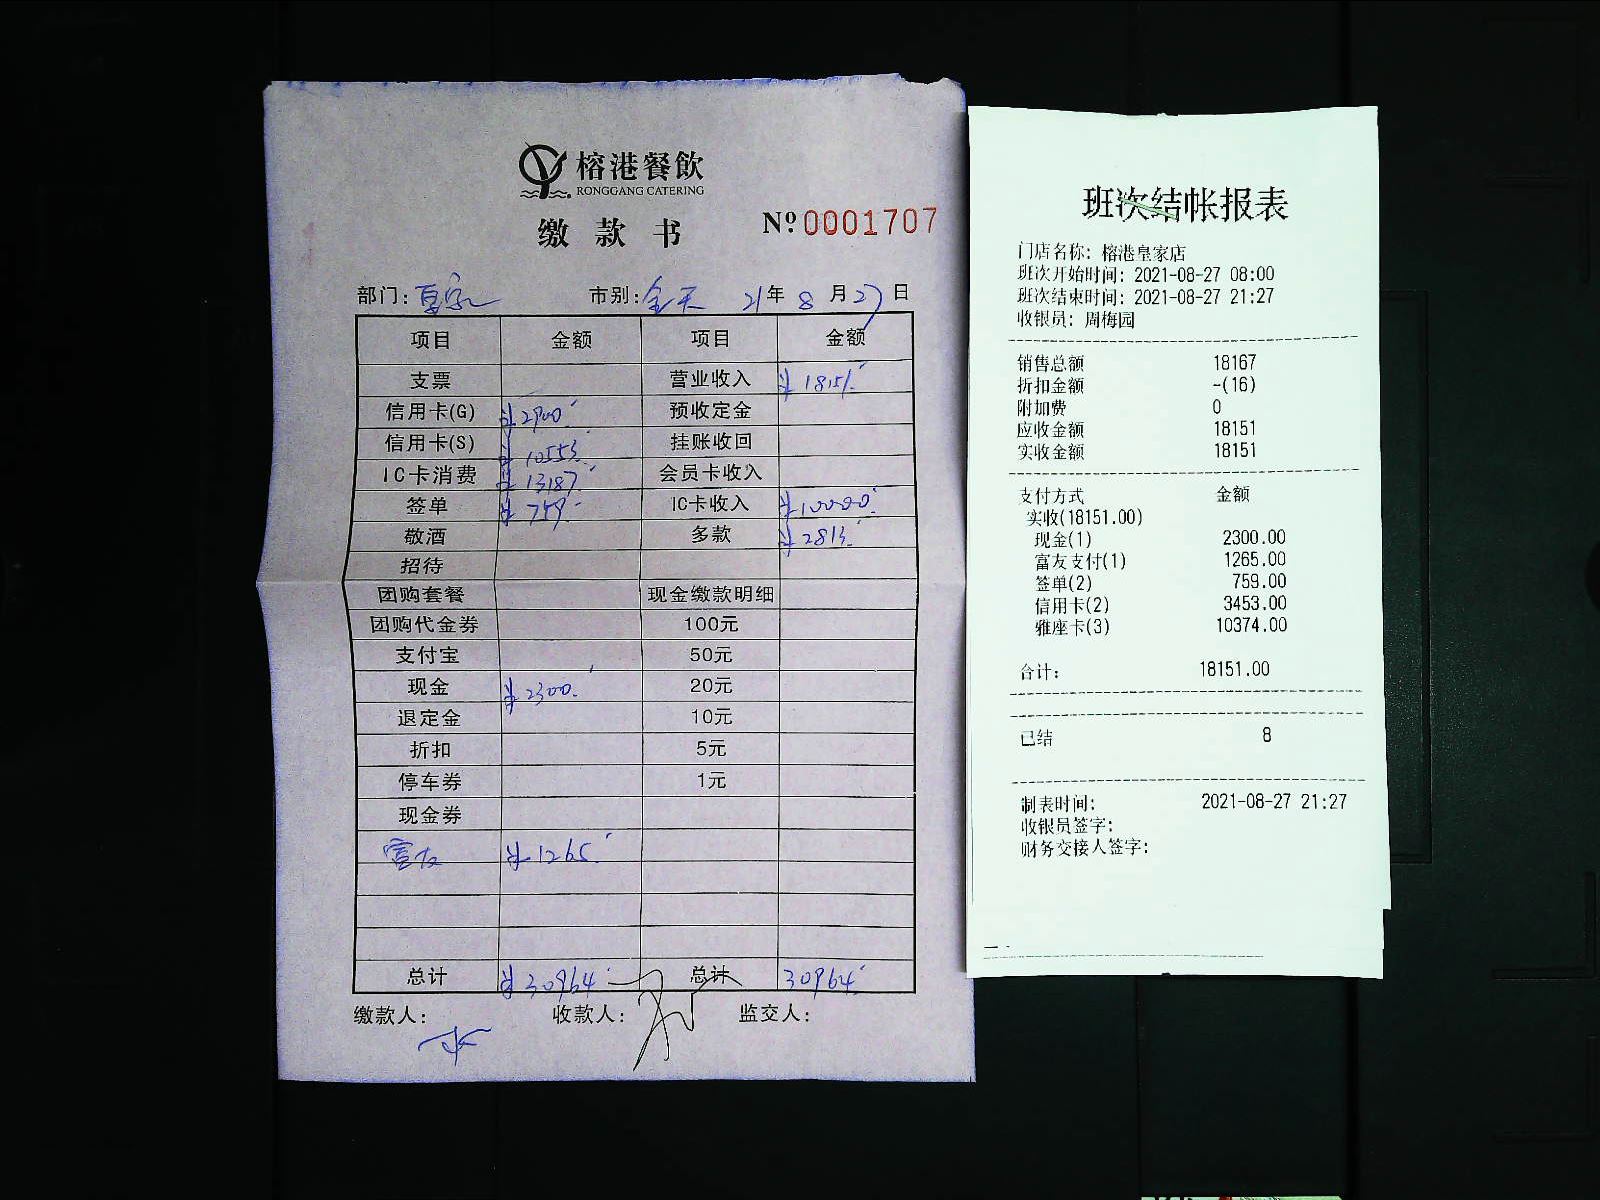 榕港餐飲
RONGGANG CATERING
缴款书
Nº 0001707
部门: 皇家 市别: 全天 21年 8月 27日
项目 金额 项目 金额
支票 营业收入 ¥18151.
信用卡(G) ¥2900 预收定金
信用卡(S) ¥10553. 挂账收回
IC卡消费 ¥13187 会员卡收入
签单 ¥759. IC卡收入 ¥10000.
敬酒 多款 ¥2813.
招待
团购套餐 现金缴款明细
团购代金券 100元
支付宝 50元
现金 ¥2300. 20元
退定金 10元
折扣 5元
停车券 1元
现金券
富友 ¥1265.
总计 ¥30964 总计 30964
缴款人: 收款人: 监交人:
班次结帐报表
门店名称: 榕港皇家店
班次开始时间: 2021-08-27 08:00
班次结束时间: 2021-08-27 21:27
收银员: 周梅园
销售总额 18167
折扣金额 -(16)
附加费 0
应收金额 18151
实收金额 18151
支付方式 金额
实收(18151.00)
现金(1) 2300.00
富友支付(1) 1265.00
签单(2) 759.00
信用卡(2) 3453.00
雅座卡(3) 10374.00
合计: 18151.00
已结 8
制表时间: 2021-08-27 21:27
收银员签字:
财务交接人签字: